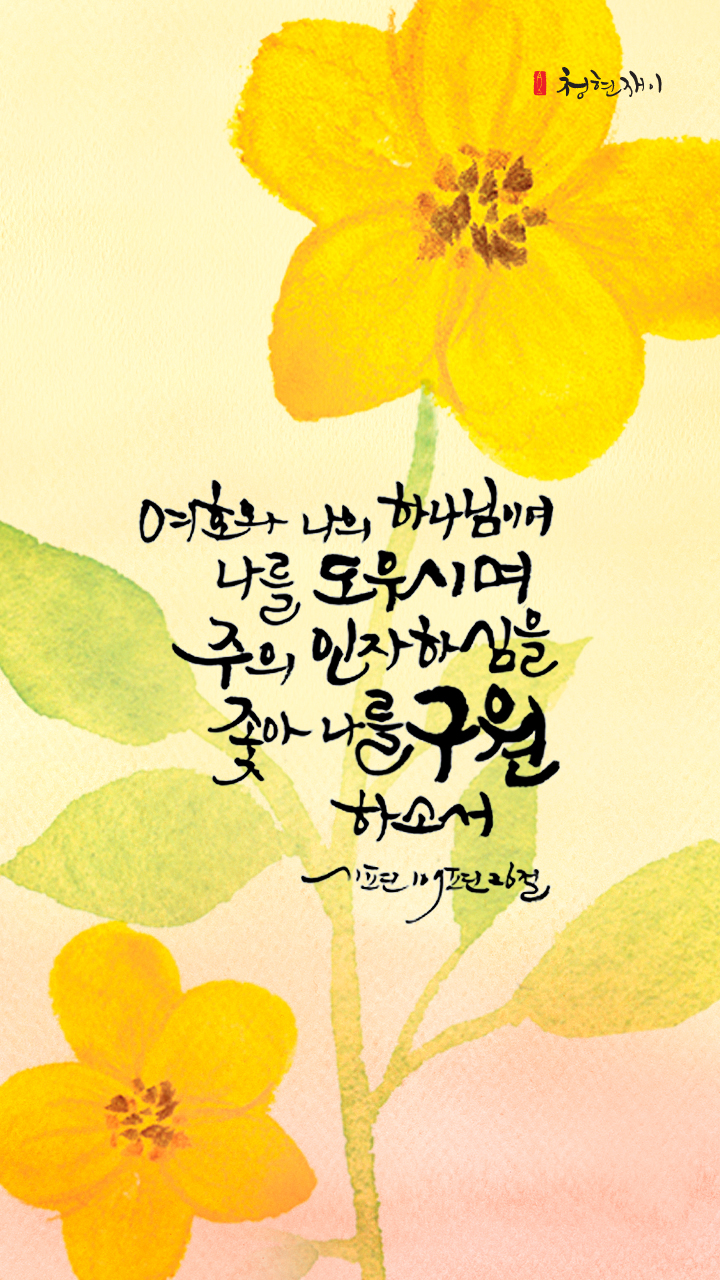 청현재이
여호와 나의 하나님이여
나를 도우시며
주의 인자하심을
좇아 나를 구원
하소서
시편 109편 26절